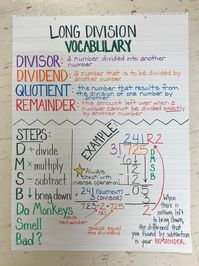 LONG DIVISION
VOCABULARY
DIVISOR: a number divided into another
number
DIVIDEND: a number that is to be divided by
another number
QUOTIENT: the number that results from
the division of one number by
another
REMAINDER: the amount left over when a
number cannot be divided exactly
by another number
STEPS:
D ÷ divide
M × multiply
S - subtract
B ↓ bring down
Do Monkeys
Smell
Bad?
EXAMPLE:
241 R2
3 725
6↓
12
12
05
3
2
D
M
S
B
Always
check with
inverse operation!
241 (QUOTIENT)
× 3 (DIVISOR)
723 + 2 = 725
plus
remainder
should equal
the dividend
When there
is nothing
left to bring
down,
the difference that
you found by subtraction
is your REMAINDER.